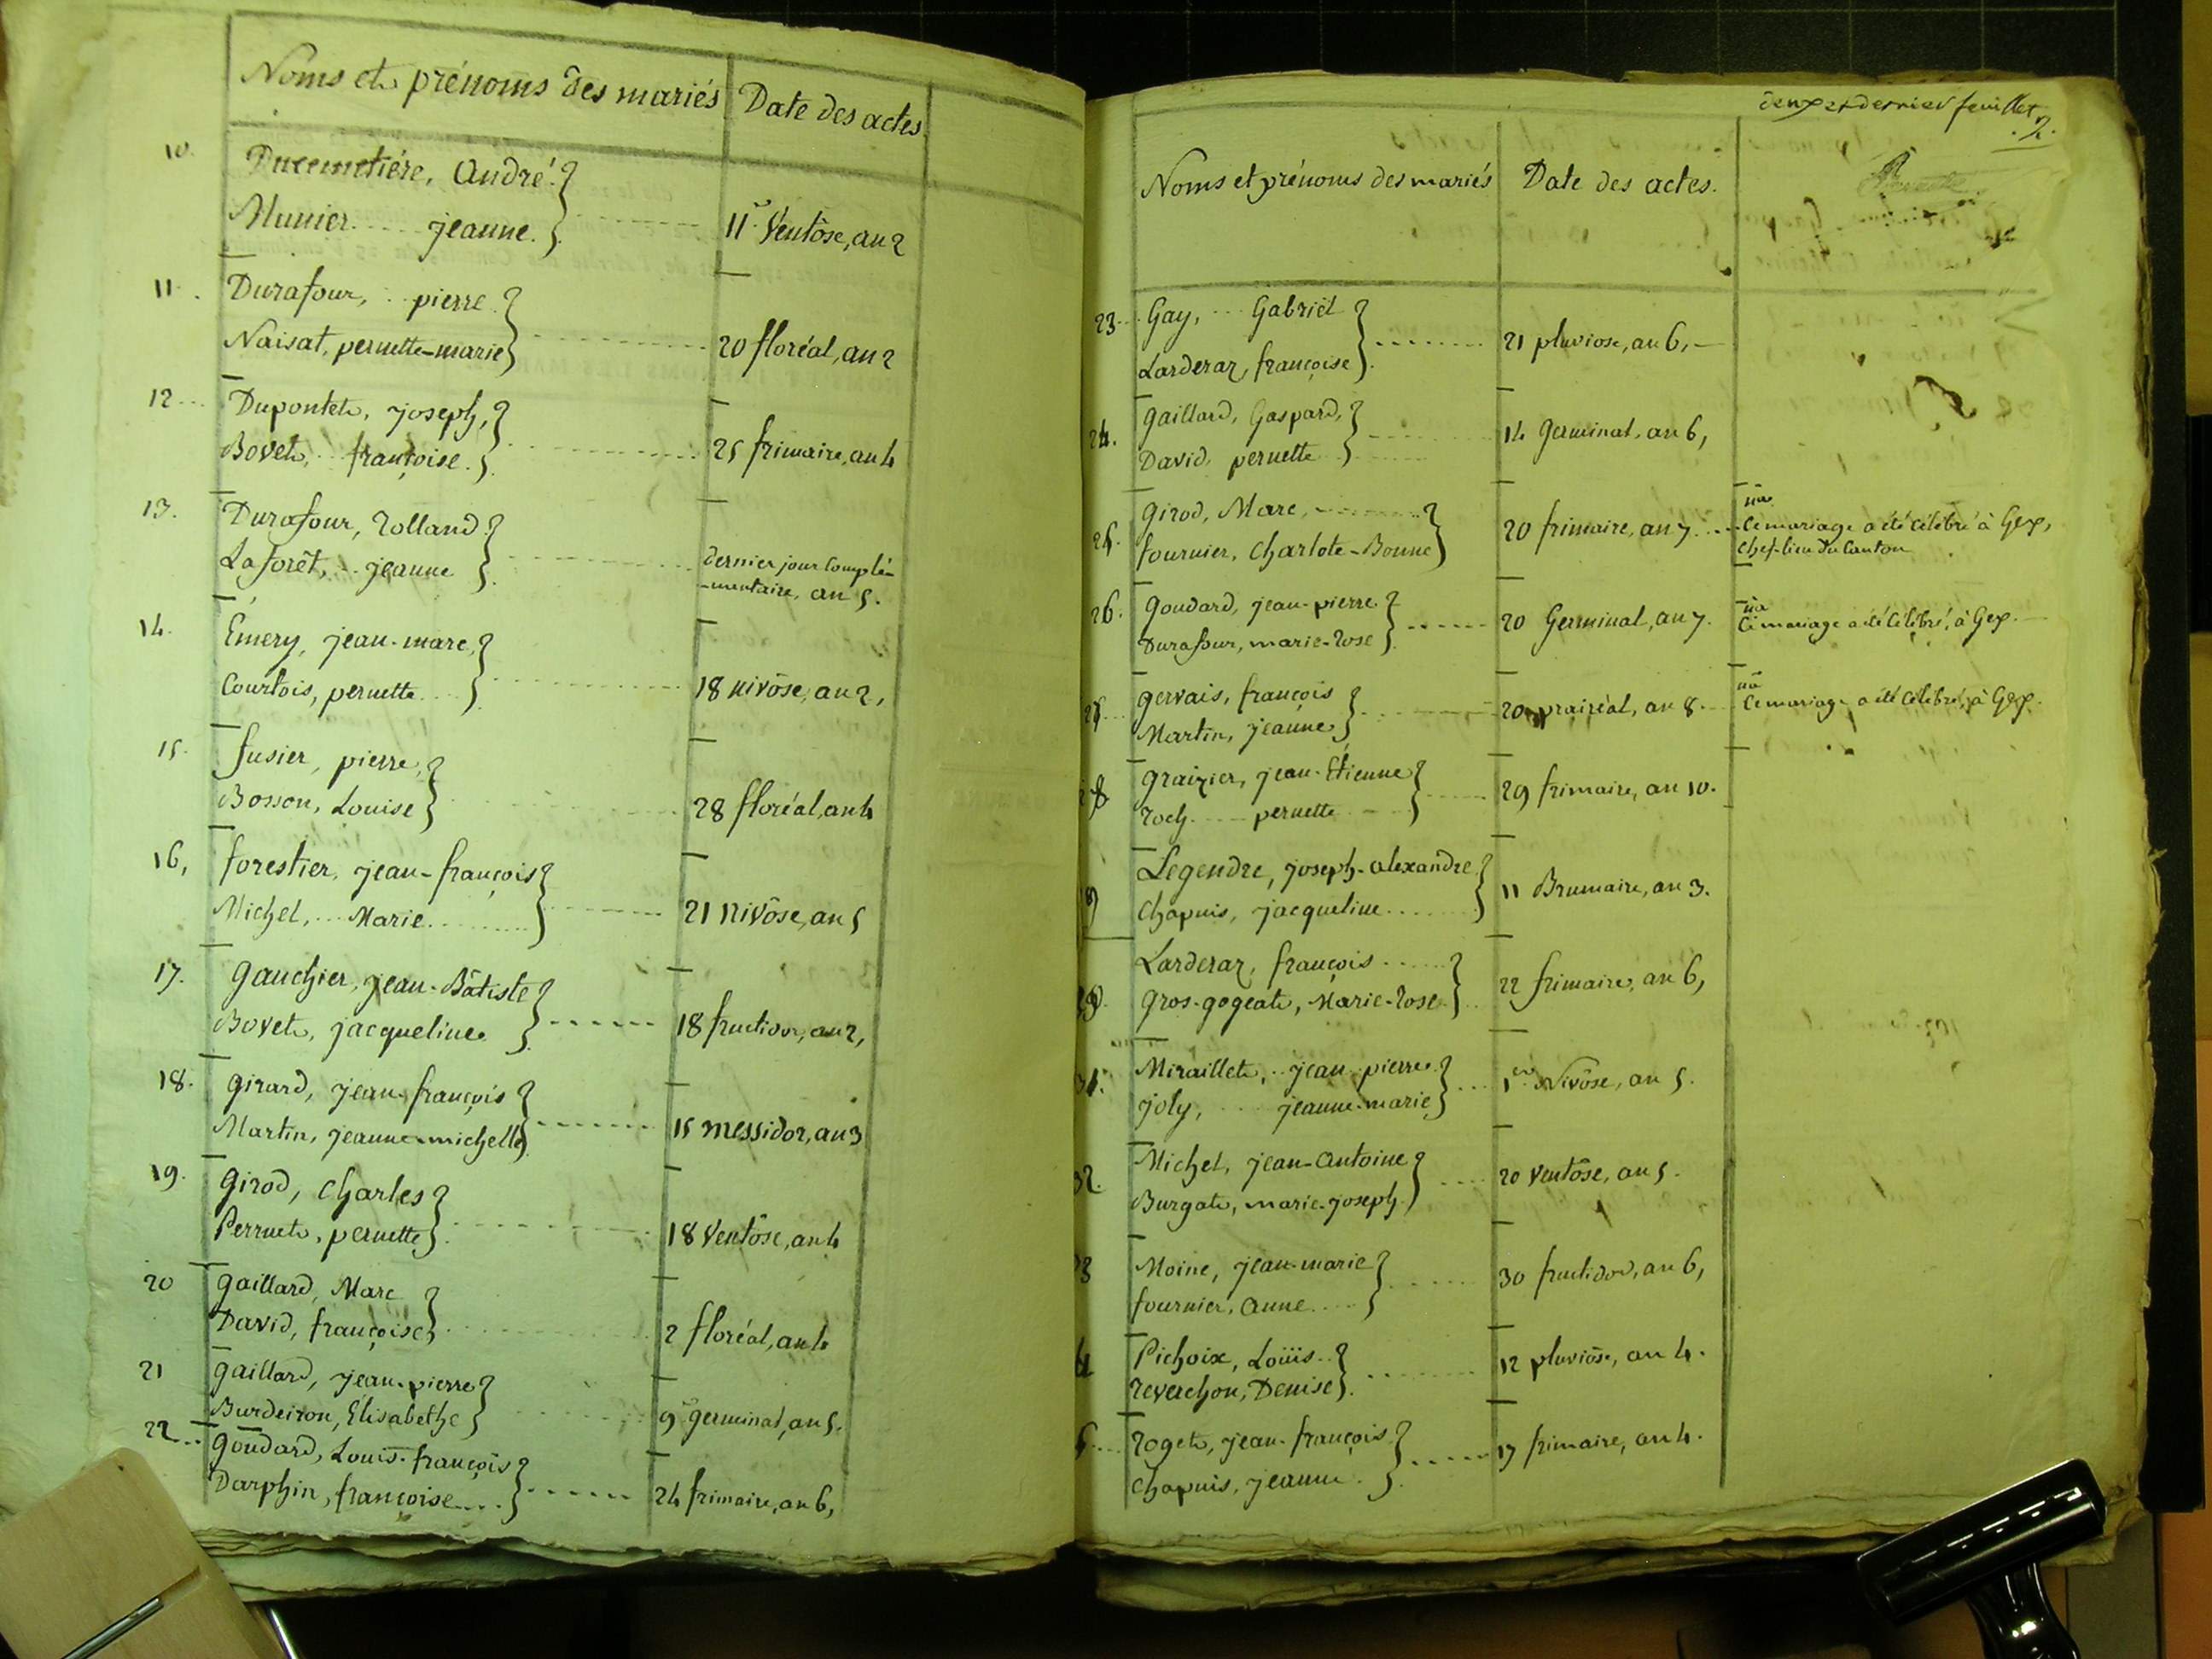 Noms et prénoms des mariés Date des actes
10. Ducemetiére, André.
Munier jeanne. 11 Ventôse, an 2
11. Durafour, pierre
Naisat, pernette-marie 20 floréal, an 2
12 Dupontet, joseph,
Bovet, françoise. 25 frimaire, an 4
13. Durafour, Rolland
Laforêt, jeanne dernier jour complé-
-mentaire, an 5.
14. Émery, jean-marc,
Courtois, pernette 18 nivôse, an 2,
15. fusier, pierre,
Bosson, Louise 28 floréal, an 4
16, forestier, jean-françois
Michel, Marie 21 Nivôse, an 5
17. Gauchier, jean-Bâtiste
Bovet, jacqueline 18 fructidor, an 2,
18. Girard, jean-françois
Martin, jeanne-michelle 15 messidor, an 3
19. Girod, Charles
Perrnet, pernette 18 Ventôse, an 4
20 Gaillard, Marc
David, françoise 2 floréal, an 4
21 Gaillard, jean-pierre
Burdeiron, Élisabethe 9 germinal, an 5.
22 Goudard, Louis-françois
Darphin, françoise 24 frimaire, an 6,
deux et dernier feuillet
2.
Noms et prénoms des mariés Date des actes.
23 Gay, Gabriël
Larderaz, françoise 21 pluviose, an 6,
24. Gaillard, Gaspard,
David, pernette 14 Germinal, an 6,
25. Girod, Marc,
fournier, Charlote-Bonne 20 frimaire, an 7 na
Ce mariage a été célébré à Gex,
Chef-lieu du Canton
26. Goudard, jean-pierre
Durafour, marie-Rose 20 Germinal, an 7. na
Ce mariage a été célébré, à Gex.
27 Gervais, françois
Martin, jeanne 20 prairéal, an 8. na
Ce mariage a été célébré, à Gex.
28 Graizier, jean-Étienne
Roch pernette 29 frimaire, an 10.
Legendre, joseph-alexandre
Chapuis, jacqueline 11 Brumaire, an 3.
Larderaz, françois
Gros-gogeat, Marie-Rose 22 frimaire, an 6,
31. Miraillet, jean pierre
joly, jeanne-marie 1er Nivôse, an 5.
32. Michel, jean-Antoine
Burgat, marie-joseph 20 Ventôse, an 5.
3 Moine, jean-marie
fournier, Anne 30 fructidor, an 6,
4 Pichoix, Loüis
Reverchon, Denise 12 pluviôse, an 4.
5 Roget, jean-françois
Chapuis, jeanne 17 frimaire, an 4.